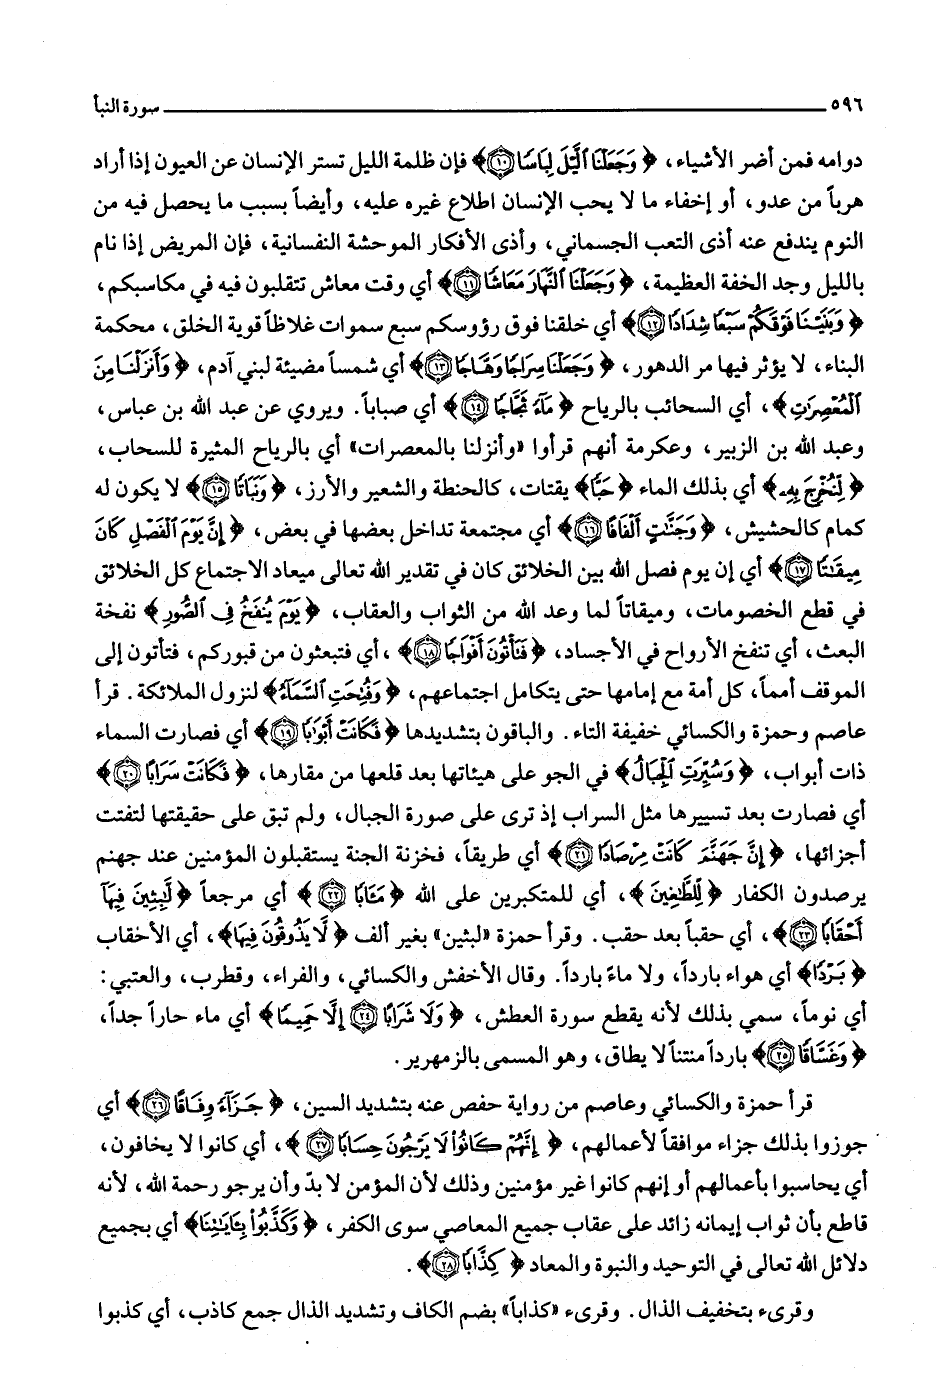 ٥٩٦ سورة النبأ
دوامه فمن أضر الأشياء، ﴿ وَجَعَلْنَا ٱلَّيْلَ لِبَاسًا ۝١٠﴾ فإن ظلمة الليل تستر الإنسان عن العيون إذا أراد
هرباً من عدو، أو إخفاء ما لا يحب الإنسان اطلاع غيره عليه، وأيضاً بسبب ما يحصل فيه من
النوم يندفع عنه أذى التعب الجسماني، وأذى الأفكار الموحشة النفسانية، فإن المريض إذا نام
بالليل وجد الخفة العظيمة، ﴿ وَجَعَلْنَا ٱلنَّهَارَ مَعَاشًا ۝١١﴾ أي وقت معاش تتقلبون فيه في مكاسبكم،
﴿ وَبَنَيْنَا فَوْقَكُمْ سَبْعًا شِدَادًا ۝١٢﴾ أي خلقنا فوق رؤوسكم سبع سموات غلاظاً قوية الخلق، محكمة
البناء، لا يؤثر فيها مر الدهور، ﴿ وَجَعَلْنَا سِرَاجًا وَهَّاجًا ۝١٣﴾ أي شمساً مضيئة لبني آدم، ﴿ وَأَنزَلْنَا مِنَ
ٱلْمُعْصِرَٰتِ ﴾، أي السحائب بالرياح ﴿ مَآءً ثَجَّاجًا ۝١٤ ﴾ أي صباباً. ويروي عن عبد الله بن عباس،
وعبد الله بن الزبير، وعكرمة أنهم قرأوا «وأنزلنا بالمعصرات» أي بالرياح المثيرة للسحاب،
﴿ لِنُخْرِجَ بِهِۦ ﴾ أي بذلك الماء ﴿ حَبًّا ﴾ يقتات، كالحنطة والشعير والأرز، ﴿ وَنَبَاتًا ۝١٥﴾ لا يكون له
كمام كالحشيش، ﴿ وَجَنَّٰتٍ أَلْفَافًا ۝١٦﴾ أي مجتمعة تداخل بعضها في بعض، ﴿ إِنَّ يَوْمَ ٱلْفَصْلِ كَانَ
مِيقَٰتًا ۝١٧﴾ أي إن يوم فصل الله بين الخلائق كان في تقدير الله تعالى ميعاد الاجتماع كل الخلائق
في قطع الخصومات، وميقاتاً لما وعد الله من الثواب والعقاب، ﴿ يَوْمَ يُنفَخُ فِى ٱلصُّورِ ﴾ نفخة
البعث، أي تنفخ الأرواح في الأجساد، ﴿ فَتَأْتُونَ أَفْوَاجًا ۝١٨﴾ ، أي فتبعثون من قبوركم، فتأتون إلى
الموقف أمماً، كل أمة مع إمامها حتى يتكامل اجتماعهم، ﴿ وَفُتِحَتِ ٱلسَّمَآءُ ﴾ لنزول الملائكة. قرأ
عاصم وحمزة والكسائي خفيفة التاء. والباقون بتشديدها ﴿ فَكَانَتْ أَبْوَٰبًا ۝١٩﴾ أي فصارت السماء
ذات أبواب، ﴿ وَسُيِّرَتِ ٱلْجِبَالُ ﴾ في الجو على هيئاتها بعد قلعها من مقارها، ﴿ فَكَانَتْ سَرَابًا ۝٢٠ ﴾
أي فصارت بعد تسييرها مثل السراب إذ ترى على صورة الجبال، ولم تبق على حقيقتها لتفتت
أجزائها، ﴿ إِنَّ جَهَنَّمَ كَانَتْ مِرْصَادًا ۝٢١﴾ أي طريقاً، فخزنة الجنة يستقبلون المؤمنين عند جهنم
يرصدون الكفار ﴿ لِّلطَّٰغِينَ ﴾، أي للمتكبرين على الله ﴿ مَـَٔابًا ۝٢٢ ﴾ أي مرجعاً ﴿ لَّٰبِثِينَ فِيهَآ
أَحْقَابًا ۝٢٣﴾، أي حقباً بعد حقب. وقرأ حمزة «لبثين» بغير ألف ﴿ لَّا يَذُوقُونَ فِيهَا ﴾، أي الأحقاب
﴿ بَرْدًا ﴾ أي هواء بارداً، ولا ماءً بارداً. وقال الأخفش والكسائي، والفراء، وقطرب، والعتبي:
أي نوماً، سمي بذلك لأنه يقطع سورة العطش، ﴿ وَلَا شَرَابًا ۝٢٤ إِلَّا حَمِيمًا ﴾ أي ماء حاراً جداً،
﴿ وَغَسَّاقًا ۝٢٥﴾ بارداً منتناً لا يطاق، وهو المسمى بالزمهرير.
قرأ حمزة والكسائي وعاصم من رواية حفص عنه بتشديد السين، ﴿ جَزَآءً وِفَاقًا ۝٢٦﴾ أي
جوزوا بذلك جزاء موافقاً لأعمالهم، ﴿ إِنَّهُمْ كَانُوا۟ لَا يَرْجُونَ حِسَابًا ۝٢٧ ﴾، أي كانوا لا يخافون،
أي يحاسبوا بأعمالهم أو إنهم كانوا غير مؤمنين وذلك لأن المؤمن لا بدّ وأن يرجو رحمة الله، لأنه
قاطع بأن ثواب إيمانه زائد على عقاب جميع المعاصي سوى الكفر، ﴿ وَكَذَّبُوا۟ بِـَٔايَٰتِنَا ﴾ أي بجميع
دلائل الله تعالى في التوحيد والنبوة والمعاد ﴿ كِذَّابًا ۝٢٨﴾.
وقرىء بتخفيف الذال. وقرىء «كذاباً» بضم الكاف وتشديد الذال جمع كاذب، أي كذبوا